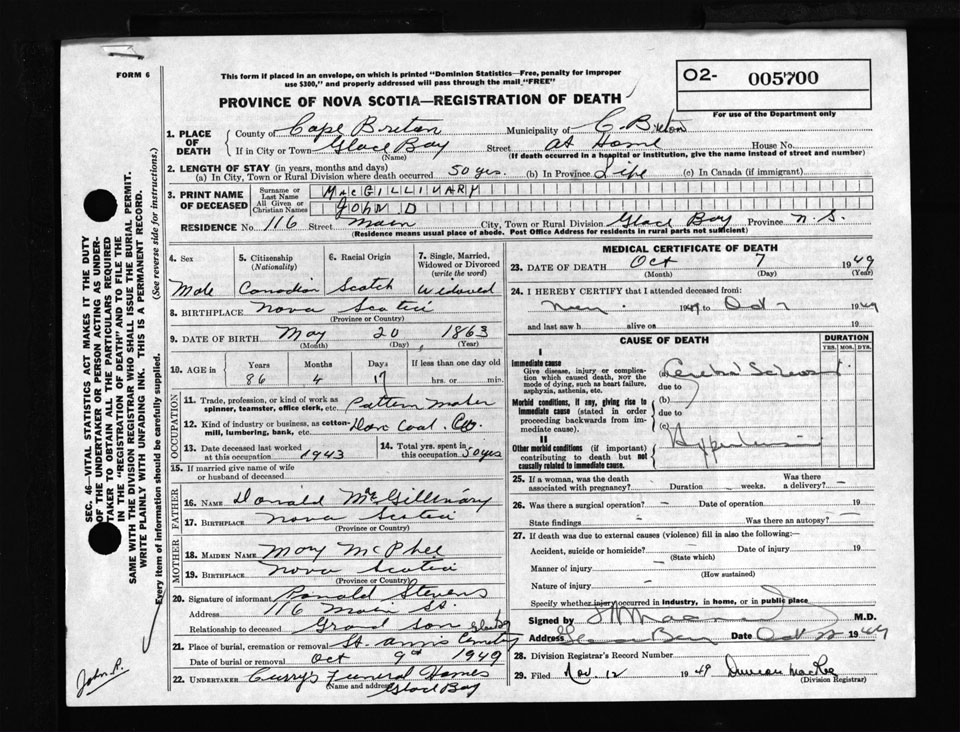 FORM 6
This form if placed in an envelope, on which is printed "Dominion Statistics—Free, penalty for improper
use $300," and properly addressed will pass through the mail "FREE"
O2- 005700
PROVINCE OF NOVA SCOTIA—REGISTRATION OF DEATH
For use of the Department only
1. PLACE OF DEATH { County of Cape Breton Municipality of C. Breton
If in City or Town Glace Bay (Name) Street At Home House No.
(If death occurred in a hospital or institution, give the name instead of street and number)
2. LENGTH OF STAY (in years, months and days)
(a) In City, Town or Rural Division where death occurred 50 yrs. (b) In Province Life (c) In Canada (if immigrant)
3. PRINT NAME OF DECEASED { Surname or Last Name MACGILLIVARY
All Given or Christian Names JOHN D
RESIDENCE No. 116 Street Main City, Town or Rural Division Glace Bay Province N.S.
(Residence means usual place of abode. Post Office Address for residents in rural parts not sufficient)
4. Sex 5. Citizenship (Nationality) 6. Racial Origin 7. Single, Married, Widowed or Divorced (write the word)
Male Canadian Scotch Widowed
8. BIRTHPLACE Nova Scotia
(Province or Country)
9. DATE OF BIRTH May 20 1863
(Month) (Day) (Year)
10. AGE in { Years Months Days If less than one day old
86 4 17 hrs. or min.
OCCUPATION
11. Trade, profession, or kind of work as spinner, teamster, office clerk, etc. Pattern Maker
12. Kind of industry or business, as cotton-mill, lumbering, bank, etc. Dom Coal. Co.
13. Date deceased last worked at this occupation 1943 14. Total yrs. spent in this occupation 50 yrs
15. If married give name of wife
or husband of deceased
FATHER
16. NAME Donald McGillivary
17. BIRTHPLACE Nova Scotia
(Province or Country)
MOTHER
18. MAIDEN NAME Mary McPhee
19. BIRTHPLACE Nova Scotia
(Province or Country)
20. Signature of informant Ronald Stevens
Address 116 Main St.
Relationship to deceased Grand son Glace Bay
21. Place of burial, cremation or removal St. Anns Cemetery
Date of burial or removal Oct 9th 1949
22. UNDERTAKER Curry's Funeral Homes
(Name and address) Glace Bay
MEDICAL CERTIFICATE OF DEATH
23. DATE OF DEATH Oct 7 1949
(Month) (Day) (Year)
24. I HEREBY CERTIFY that I attended deceased from:
1949 to Oct 7 1949
and last saw h alive on 19
CAUSE OF DEATH DURATION
YRS. MOS. DYS.
I
Immediate cause
Give disease, injury or complication which caused death, NOT the mode of dying, such as heart failure, asphyxia, asthenia, etc. (a)
due to
Morbid conditions, if any, giving rise to immediate cause (stated in order proceeding backwards from immediate cause). (b)
due to
(c)
II
Other morbid conditions (if important) contributing to death but not causally related to immediate cause. Hypertension
25. If a woman, was the death associated with pregnancy? Duration weeks. Was there a delivery? -
26. Was there a surgical operation? - Date of operation 19
State findings - Was there an autopsy? -
27. If death was due to external causes (violence) fill in also the following:—
Accident, suicide or homicide? Date of injury 19
(State which)
Manner of injury -
(How sustained)
Nature of injury -
Specify whether injury occurred in industry, in home, or in public place
Signed by M.D.
Address Glace Bay Date Oct 1949
28. Division Registrar's Record Number
29. Filed Nov. 12 1949 Duncan MacRae
(Division Registrar)
SEC. 46—VITAL STATISTICS ACT MAKES IT THE DUTY
OF THE UNDERTAKER OR PERSON ACTING AS UNDER-
TAKER TO OBTAIN ALL THE PARTICULARS REQUIRED
IN THE "REGISTRATION OF DEATH" AND TO FILE THE
SAME WITH THE DIVISION REGISTRAR WHO SHALL ISSUE THE BURIAL PERMIT.
WRITE PLAINLY WITH UNFADING INK. THIS IS A PERMANENT RECORD.
Every item of information should be carefully supplied. (See reverse side for instructions.)
John R.